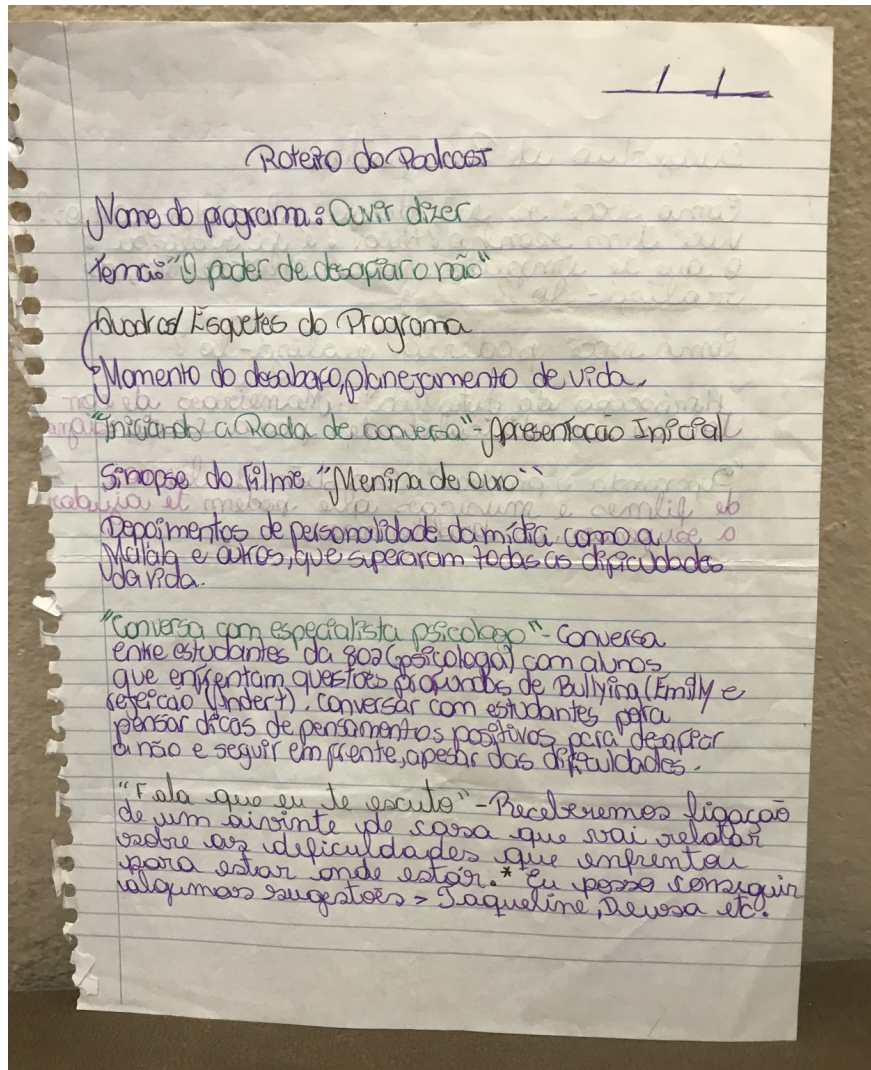 Roteiro do Podcast
Nome do programa: Ouvir dizer
Tema: "O poder de desafiar o não"
Quadros/Esquetes do Programa
Momento do desabafo, planejamento de vida.
"Iniciando a Roda de conversa"-Apresentação Inicial
Sinopse do Filme "Menina de ouro"
Depoimentos de personalidade da mídia como a
Malala e outros, que superaram todas as dificuldades
da vida.
"Conversa com especialista psicologo"-Conversa
entre estudantes da 802 (psicologa) com alunos
que enfrentam questões profundas de Bullying (Emilly e
rejeicao (Andert). conversar com estudantes para
pensar dicas de pensamentos positivos para desafiar
o não e seguir em frente, apesar das dificuldades.
"Fala que eu te escuto"-Receberemos ligação
de um ouvinte de casa que vai relatar
sobre as dificuldades que enfrentou
para estar onde estar.* Eu posso conseguir
algumas sugestões > Jaqueline, Deusa etc.